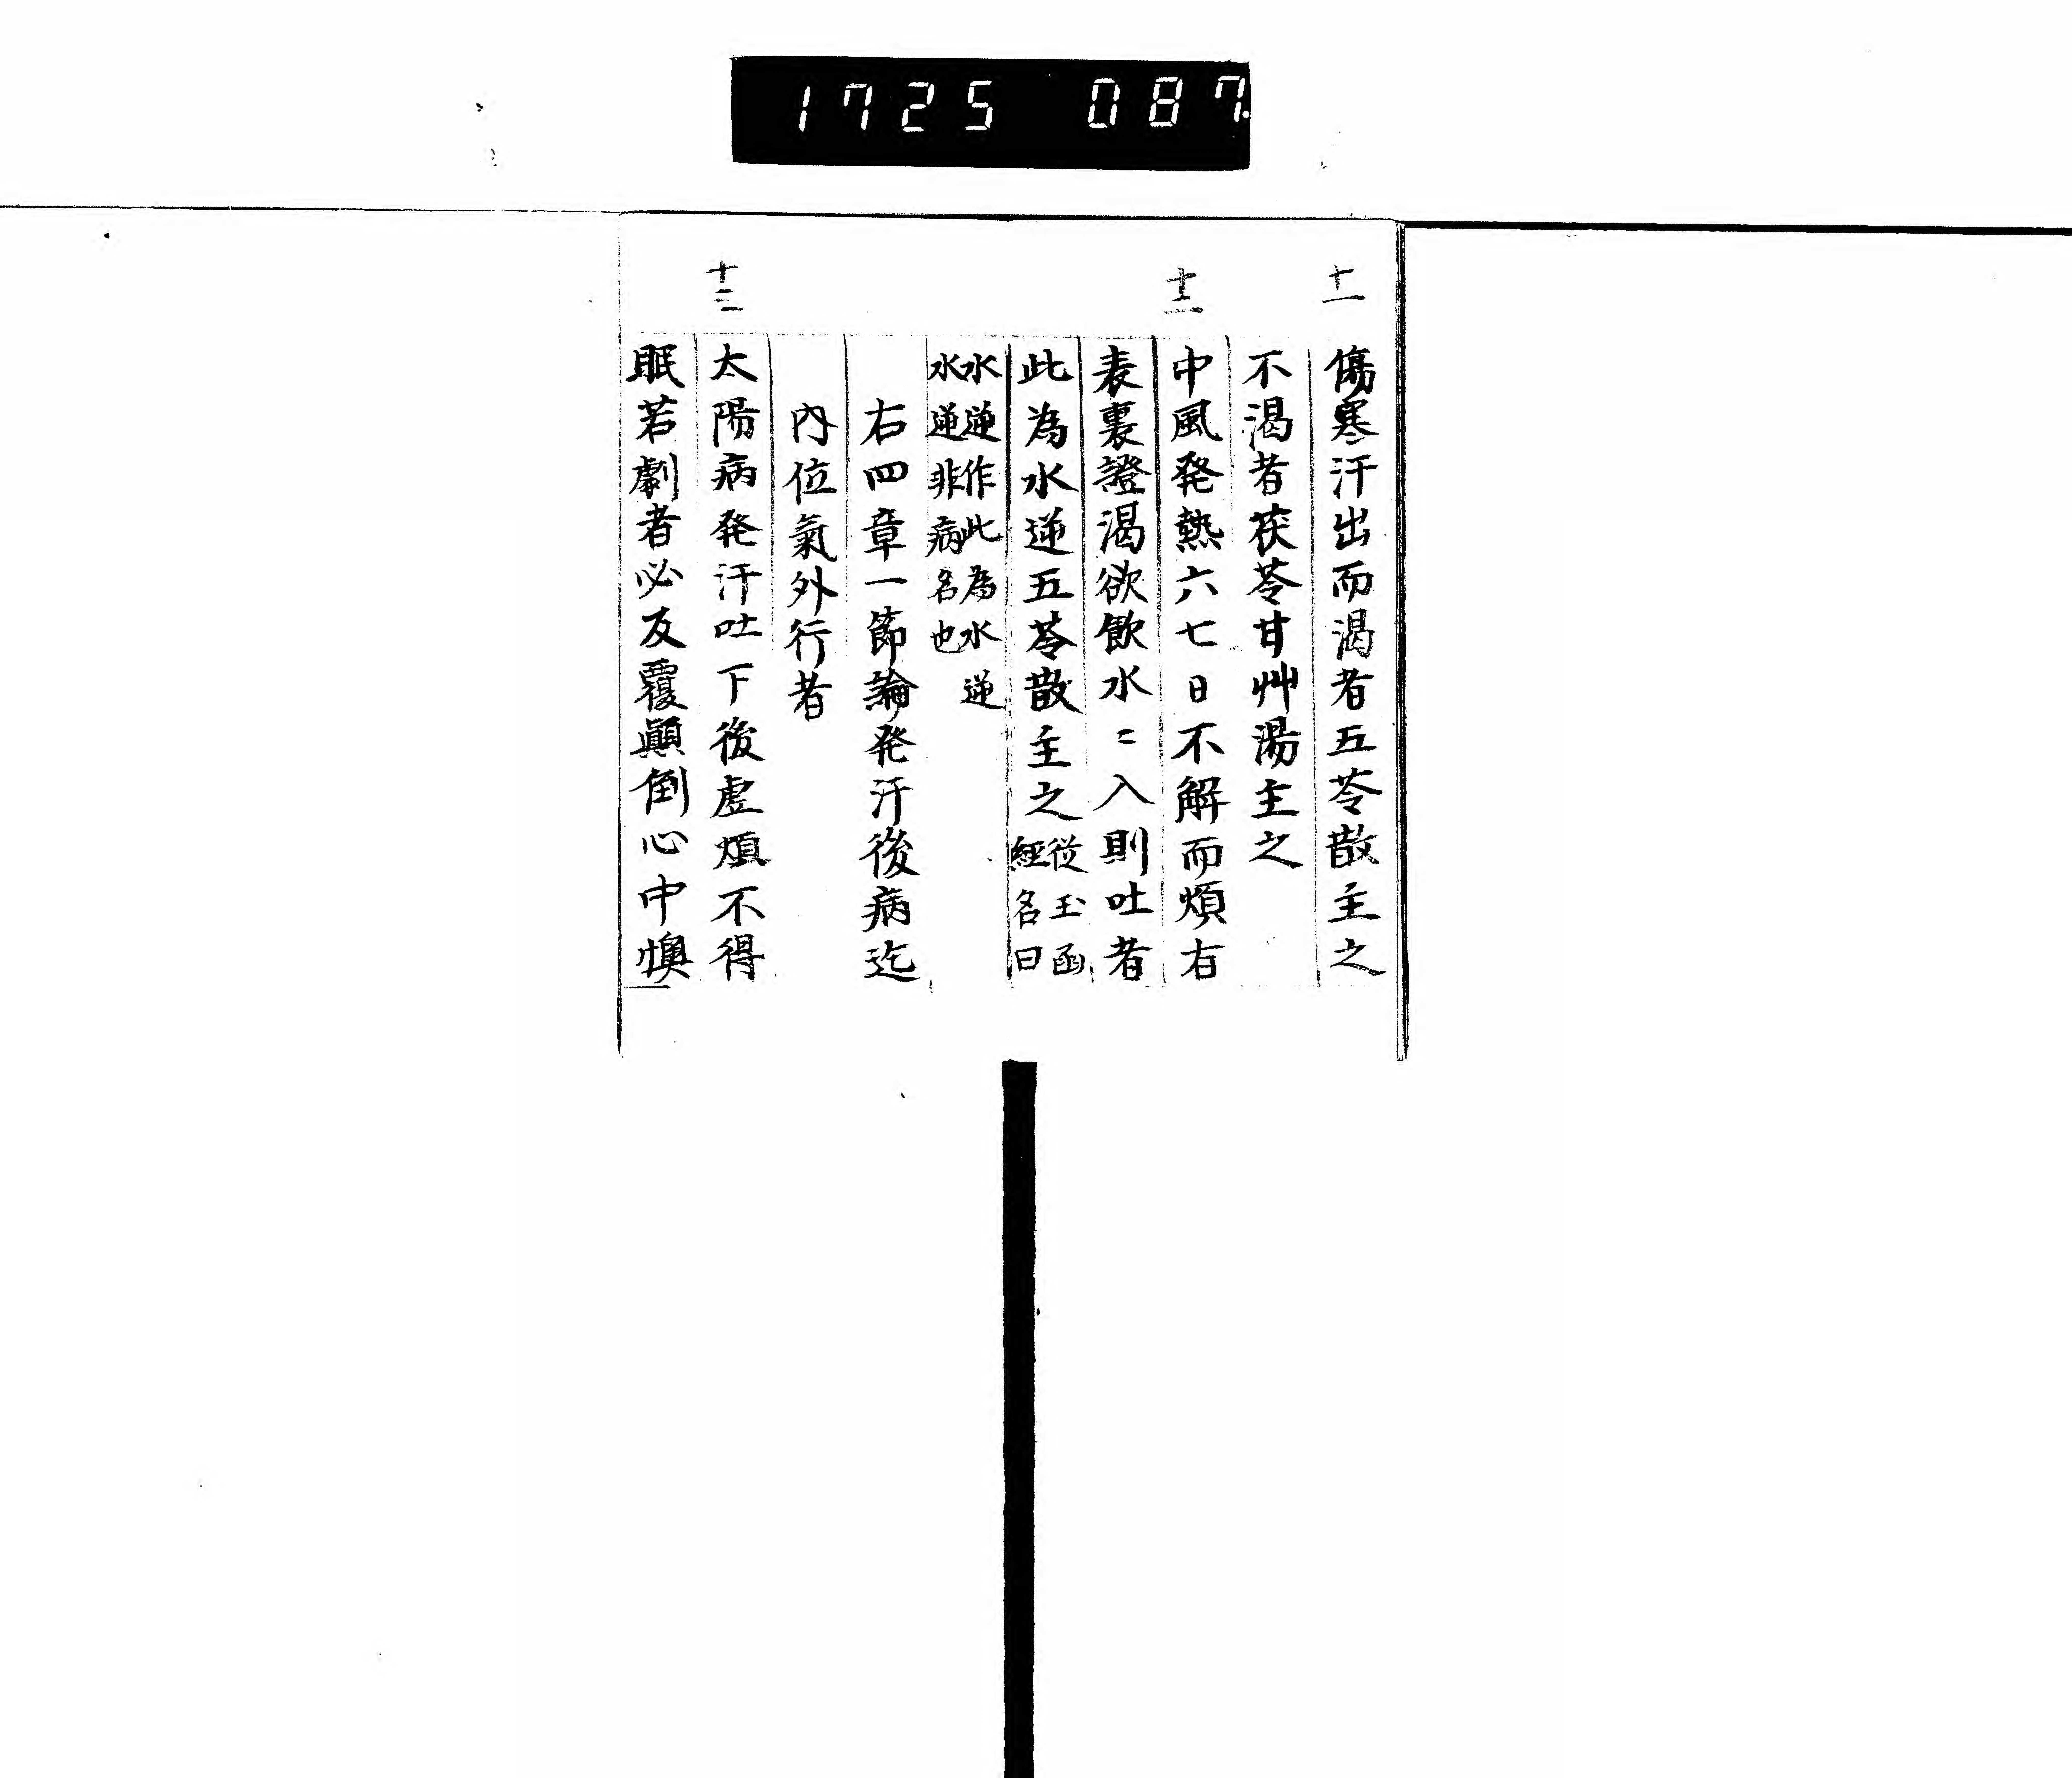 1725 087.
十一
傷寒汗出而渴者五苓散主之
不渴者茯苓甘艸湯主之
十二
中風発熱六七日不解而煩有
表裏證渴欲飲水〻入則吐者
此為水逆五苓散主之從玉函
經名曰
水逆作此為水逆
水逆非病名也
右四章一節論発汗後病迄
內位氣外行者
十三
太陽病発汗吐下後虛煩不得
眠若劇者必反覆顚倒心中懊